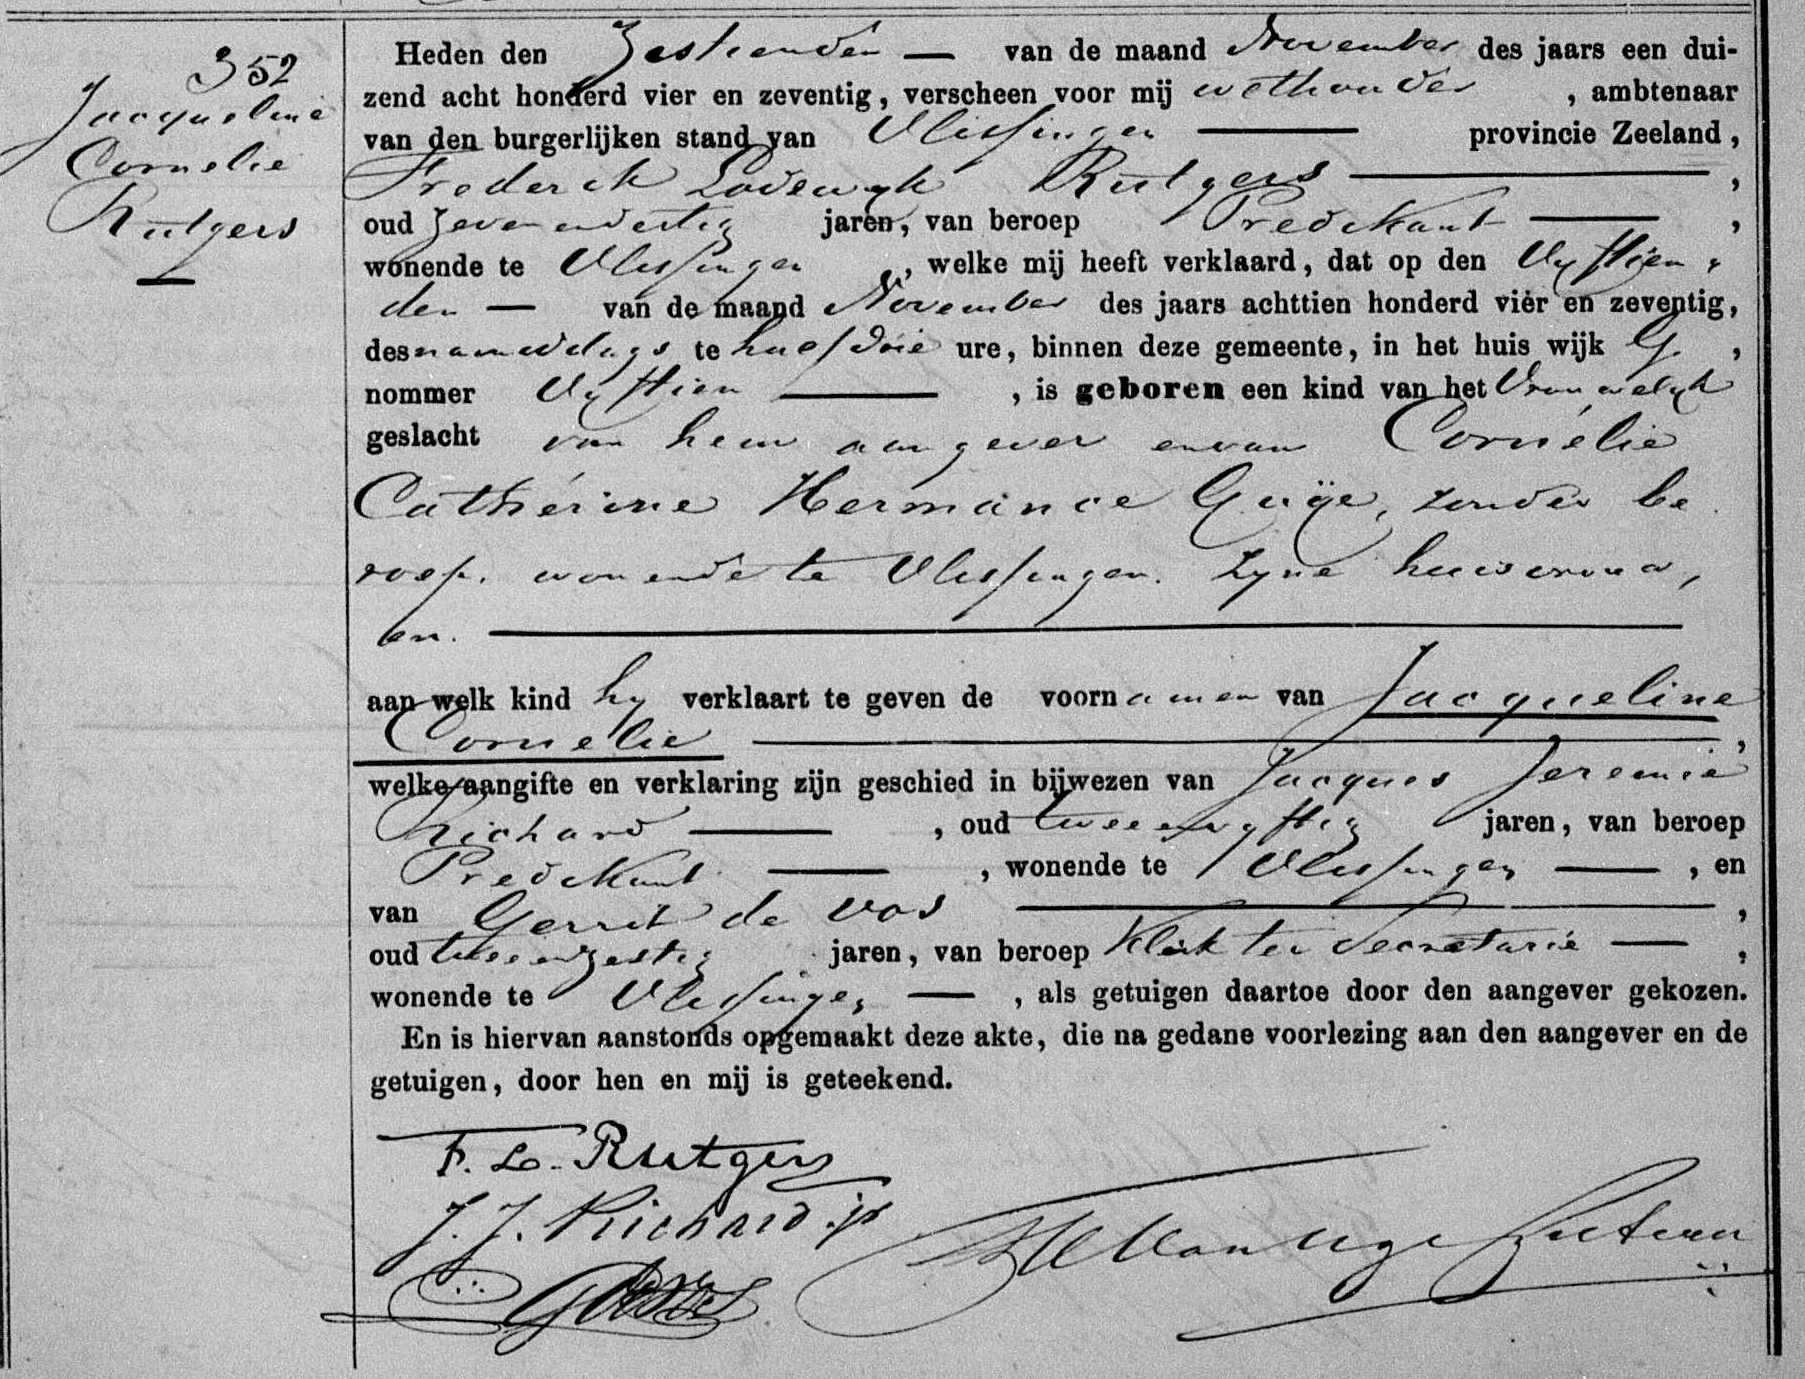 352
Jacqueline
Cornelie
Rutgers
Heden den Zestienden — van de maand November des jaars een dui-
zend acht honderd vier en zeventig, verscheen voor mij wethouder , ambtenaar
van den burgerlijken stand van Vlissingen — provincie Zeeland,
Frederik Lodewyk Rutgers — ,
oud Zevenendertig jaren, van beroep Predikant — ,
wonende te Vlissingen , welke mij heeft verklaard, dat op den Vyftien-
den — van de maand November des jaars achttien honderd vier en zeventig,
des namiddags te half drie ure, binnen deze gemeente, in het huis wijk G. ,
nommer Vyftien — , is geboren een kind van het Vrouwelyk
geslacht van hem aangever en van Cornélie
Cathérine Hermance Guÿe, zonder be
roep. wonende te Vlissingen. Zyne huisvrouw,
en. —
aan welk kind hy verklaart te geven de voornamen van Jacqueline
Cornelie — ,
welke aangifte en verklaring zijn geschied in bijwezen van Jacques Jeremie
Richard — , oud tweeenvyftig jaren, van beroep
Predikant — , wonende te Vlissingen — , en
van Gerrit de Vos — ,
oud tweeenzestig jaren, van beroep Klerk ter Secretarie — ,
wonende te Vlissingen — , als getuigen daartoe door den aangever gekozen.
En is hiervan aanstonds opgemaakt deze akte, die na gedane voorlezing aan den aangever en de
getuigen, door hen en mij is geteekend.
F. L. Rutgers
J. J. Richard jr
GdeVos
Van Uije Pieterse